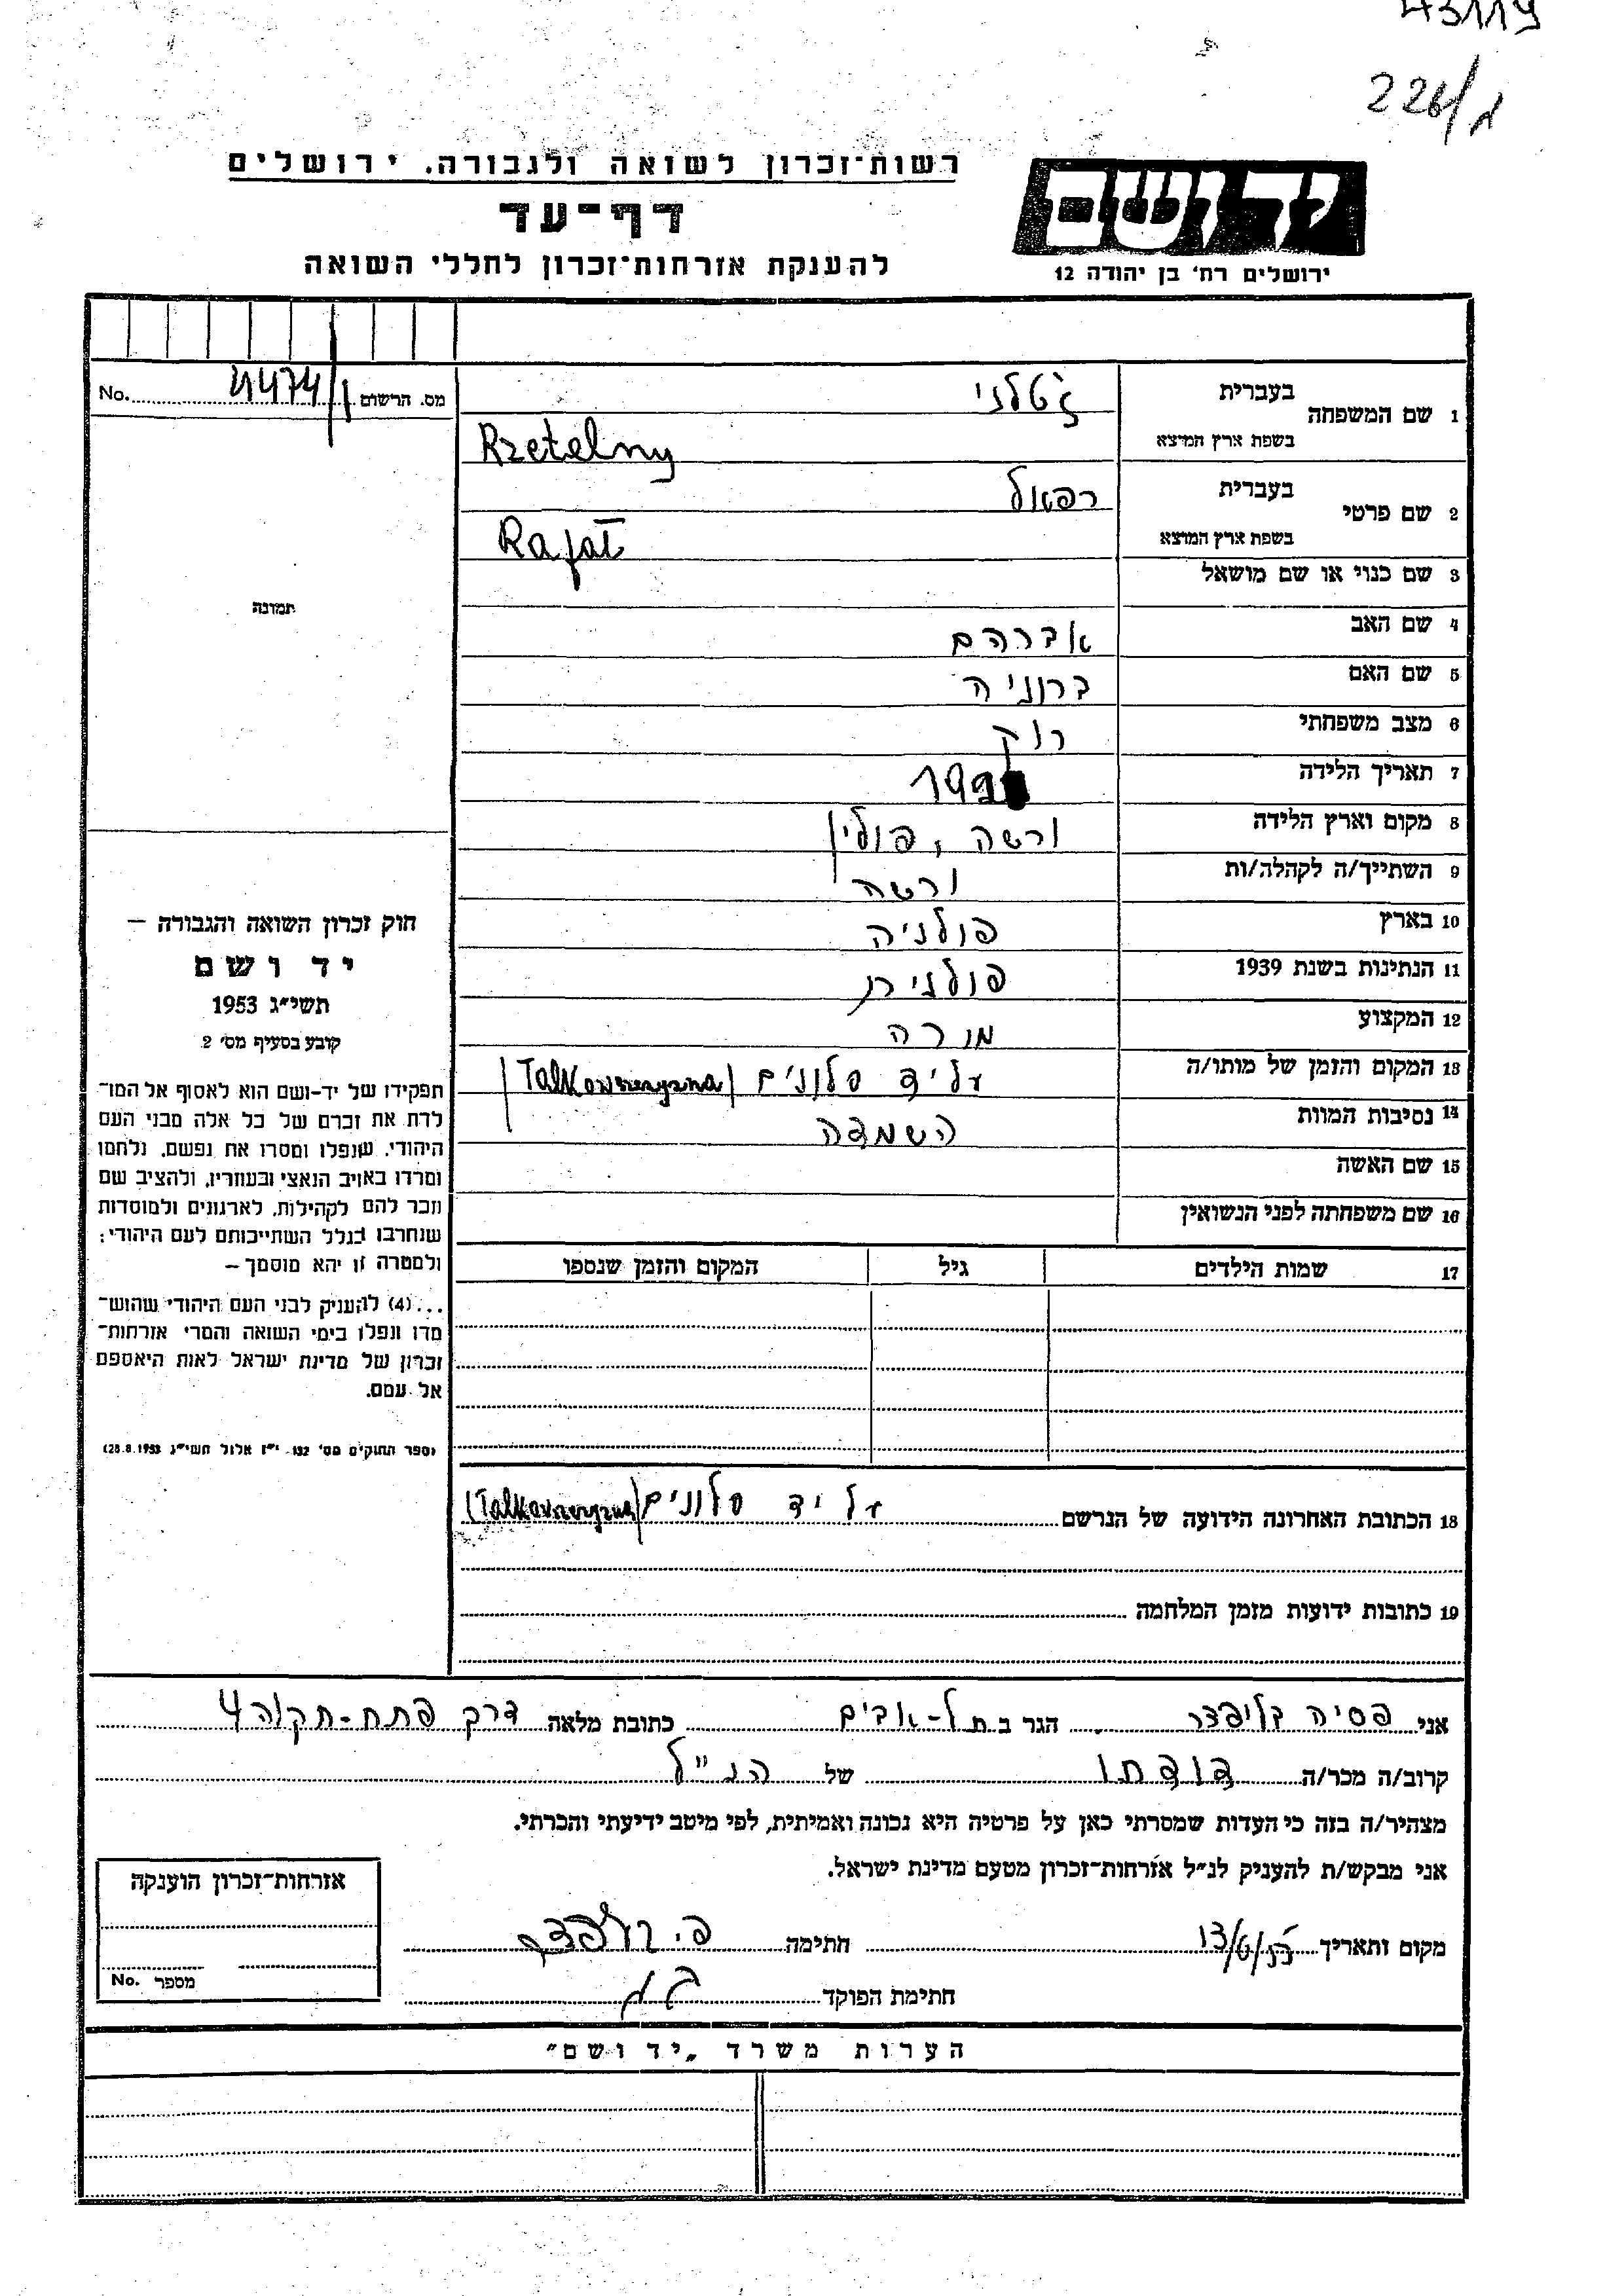 43119
226/א
רשות־זכרון לשואה ולגבורה. ירושלים
דף־עד
להענקת אזרחות־זכרון לחללי השואה
יד ושם
ירושלים רח' בן יהודה 12
מס. הרשום 4474/1 No.
1 שם המשפחה בעברית ז'טלני
בשפת ארץ המוצא Rzetelny
2 שם פרטי בעברית רפאל
בשפת ארץ המוצא Rafał
3 שם כנוי או שם מושאל
4 שם האב אברהם
5 שם האם ברוניה
6 מצב משפחתי רוק
7 תאריך הלידה
8 מקום וארץ הלידה ורשה, פולין
9 השתייך/ה לקהלה/ות ורשה
10 בארץ פולניה
11 הנתינות בשנת 1939 פולנית
12 המקצוע מורה
13 המקום והזמן של מותו/ה על יד סלונים
14 נסיבות המוות השמדה
15 שם האשה
16 שם משפחתה לפני הנשואין
17 שמות הילדים גיל המקום והזמן שנספו
תמונה
חוק זכרון השואה והגבורה –
יד ושם
תשי״ג 1953
קובע בסעיף מס' 2
תפקידו של יד-ושם הוא לאסוף אל המו־
לדת את זכרם של כל אלה מבני העם
היהודי. שנפלו ומסרו את נפשם. נלחמו
ומרדו באויב הנאצי ובעוזריו, ולהציב שם
וזכר להם לקהילות, לארגונים ולמוסדות
שנחרבו בגלל השתייכותם לעם היהודי:
ולמטרה זו יהא מוסמך –
...(4) להעניק לבני העם היהודי שהוש־
מדו ונפלו בימי השואה והמרי אזרחות־
זכרון של מדינת ישראל לאות היאספם
אל עמם.
(ספר החוקים מס' 132. י״ז אלול תשי״ג 28.8.1953)
18 הכתובת האחרונה הידועה של הנרשם על יד סלונים
19 כתובות ידועות מזמן המלחמה
אני פסיה בליפצר הגר ב תל-אביב כתובת מלאה דרך פתח-תקוה 4
קרוב/ה מכר/ה דודתו של הנ״ל
מצהיר/ה בזה כי העדות שמסרתי כאן על פרטיה היא נכונה ואמיתית, לפי מיטב ידיעתי והכרתי.
אני מבקש/ת להעניק לנ״ל אזרחות־זכרון מטעם מדינת ישראל.
מקום ותאריך 13/6/55 חתימה פ. בליפצר
חתימת הפוקד
אזרחות־זכרון הוענקה
מספר No.
הערות משרד „יד ושם״